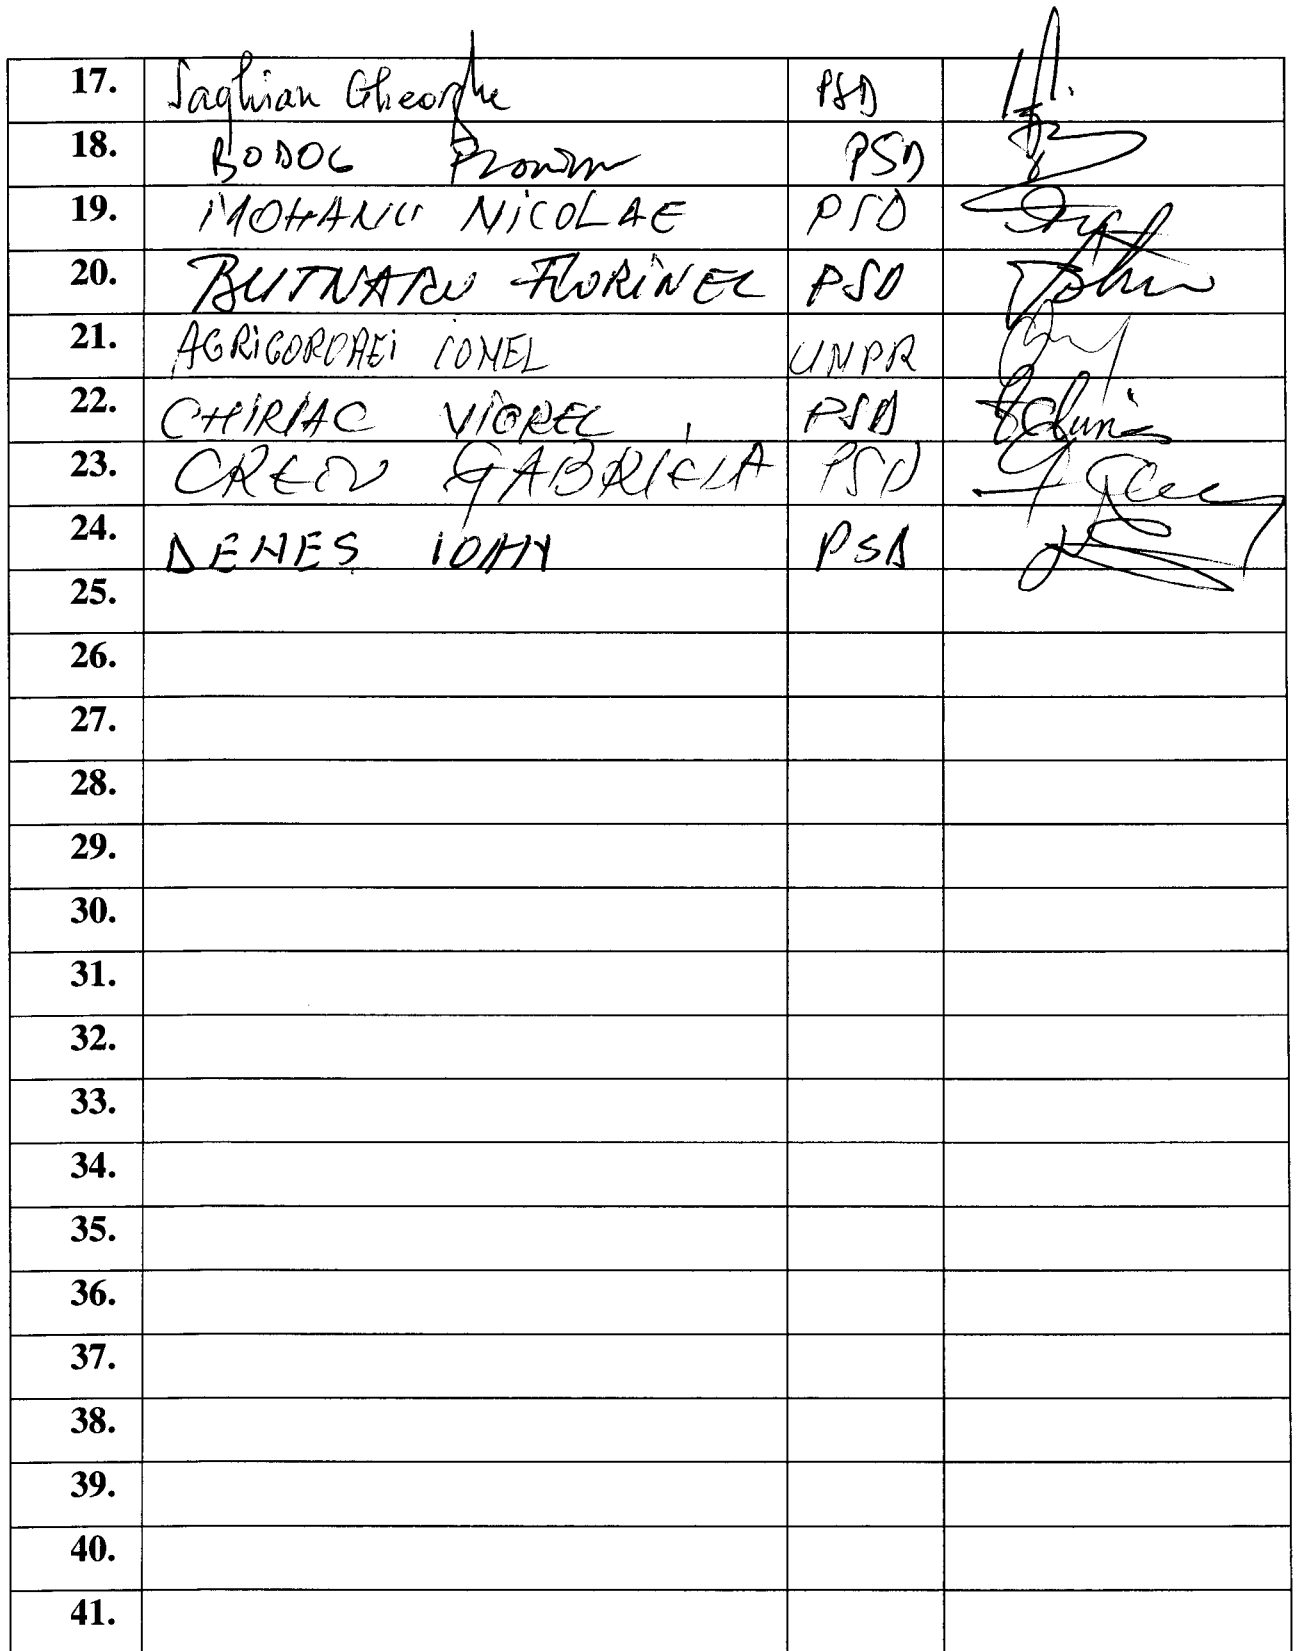 17. Saghian Gheorghe PSD
18. BODOG PSD
19. MOHANU NICOLAE PSD
20. BUTNARU FLORINEL PSD
21. AGRIGOROAEI IONEL UNPR
22. CHIRIAC VIOREL PSD
23. CREȚU GABRIELA PSD
24. DENEȘ IOAN PSD
25.
26.
27.
28.
29.
30.
31.
32.
33.
34.
35.
36.
37.
38.
39.
40.
41.